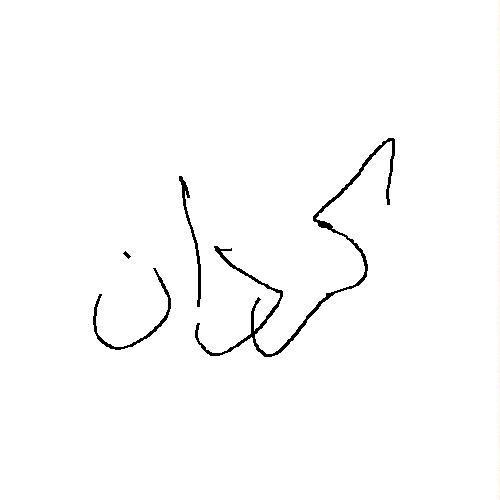 کردان